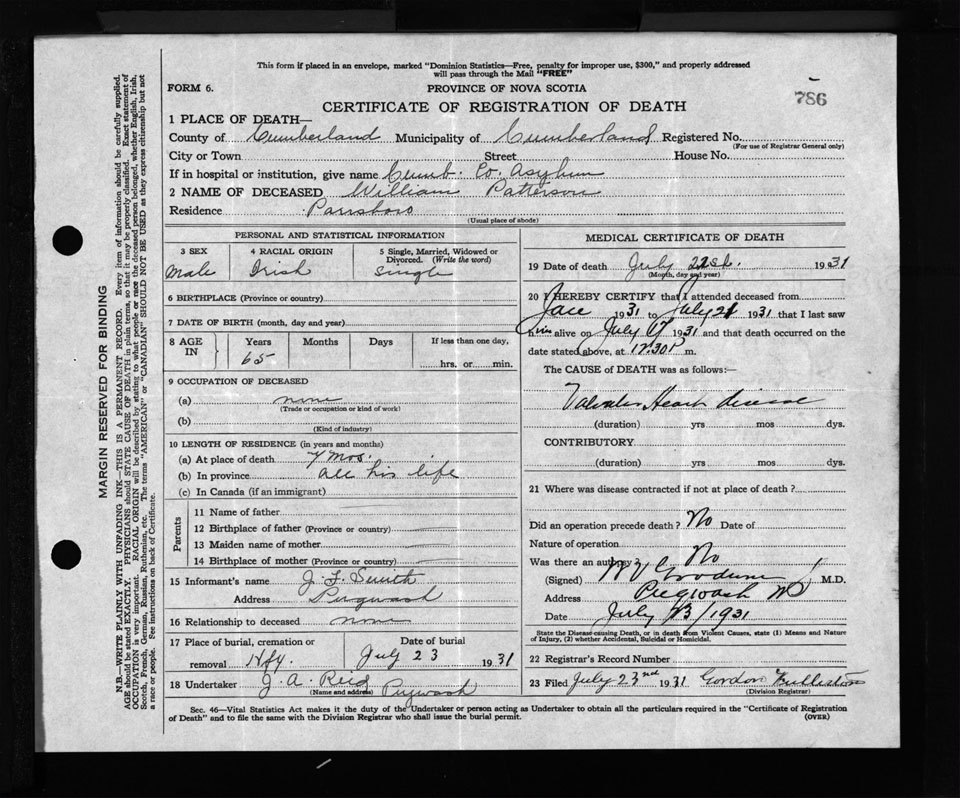 This form if placed in an envelope, marked "Dominion Statistics—Free, penalty for improper use, $300," and properly addressed
will pass through the Mail "FREE"
FORM 6.
PROVINCE OF NOVA SCOTIA
786
CERTIFICATE OF REGISTRATION OF DEATH
1 PLACE OF DEATH—
County of Cumberland Municipality of Cumberland Registered No.
(For use of Registrar General only)
City or Town Street House No.
If in hospital or institution, give name Cumb. Co. Asylum
2 NAME OF DECEASED William Patterson
Residence Parrsboro
(Usual place of abode)
PERSONAL AND STATISTICAL INFORMATION
3 SEX 4 RACIAL ORIGIN 5 Single, Married, Widowed or
Divorced. (Write the word)
Male Irish Single
6 BIRTHPLACE (Province or country)
7 DATE OF BIRTH (month, day and year)
8 AGE IN Years Months Days If less than one day,
65 hrs. or min.
9 OCCUPATION OF DECEASED
(a) none
(Trade or occupation or kind of work)
(b)
(Kind of industry)
10 LENGTH OF RESIDENCE (in years and months)
(a) At place of death 7 mos.
(b) In province all his life
(c) In Canada (if an immigrant)
Parents
11 Name of father
12 Birthplace of father (Province or country)
13 Maiden name of mother
14 Birthplace of mother (Province or country)
15 Informant's name J. F. Smith
Address Pugwash
16 Relationship to deceased none
17 Place of burial, cremation or Date of burial
removal Hfx. July 23 1931
18 Undertaker J. A. Reid Pugwash
(Name and address)
MEDICAL CERTIFICATE OF DEATH
19 Date of death July 21st. 1931
(Month, day and year)
20 I HEREBY CERTIFY that I attended deceased from
1931 to July 21 1931 that I last saw
him alive on July 17 1931 and that death occurred on the
date stated above, at 12.30 P m.
The CAUSE of DEATH was as follows:—
Valvular Heart disease
(duration) yrs mos dys.
CONTRIBUTORY
(duration) yrs mos dys.
21 Where was disease contracted if not at place of death?
Did an operation precede death? No Date of
Nature of operation
Was there an autopsy No
(Signed) M.D.
Address Pugwash NS
Date July 23/1931
State the Disease causing Death, or in death from Violent Causes, state (1) Means and Nature
of Injury, (2) whether Accidental, Suicidal or Homicidal.
22 Registrar's Record Number
23 Filed July 23rd 1931 Gordon
(Division Registrar)
Sec. 46—Vital Statistics Act makes it the duty of the Undertaker or person acting as Undertaker to obtain all the particulars required in the "Certificate of Registration
of Death" and to file the same with the Division Registrar who shall issue the burial permit.
(OVER)
MARGIN RESERVED FOR BINDING
N.B.—WRITE PLAINLY WITH UNFADING INK—THIS IS A PERMANENT RECORD. Every item of information should be carefully supplied.
AGE should be stated EXACTLY. PHYSICIANS should STATE CAUSE OF DEATH in plain terms, so that it may be properly classified. Exact statement of
OCCUPATION is very important. RACIAL ORIGIN will be described by stating to what people or race the deceased person belonged, whether English, Irish,
Scotch, French, German, Russian, Ruthenian, etc. The terms "AMERICAN" or "CANADIAN" SHOULD NOT BE USED as they express citizenship but not
a race or people. See instructions on back of Certificate.